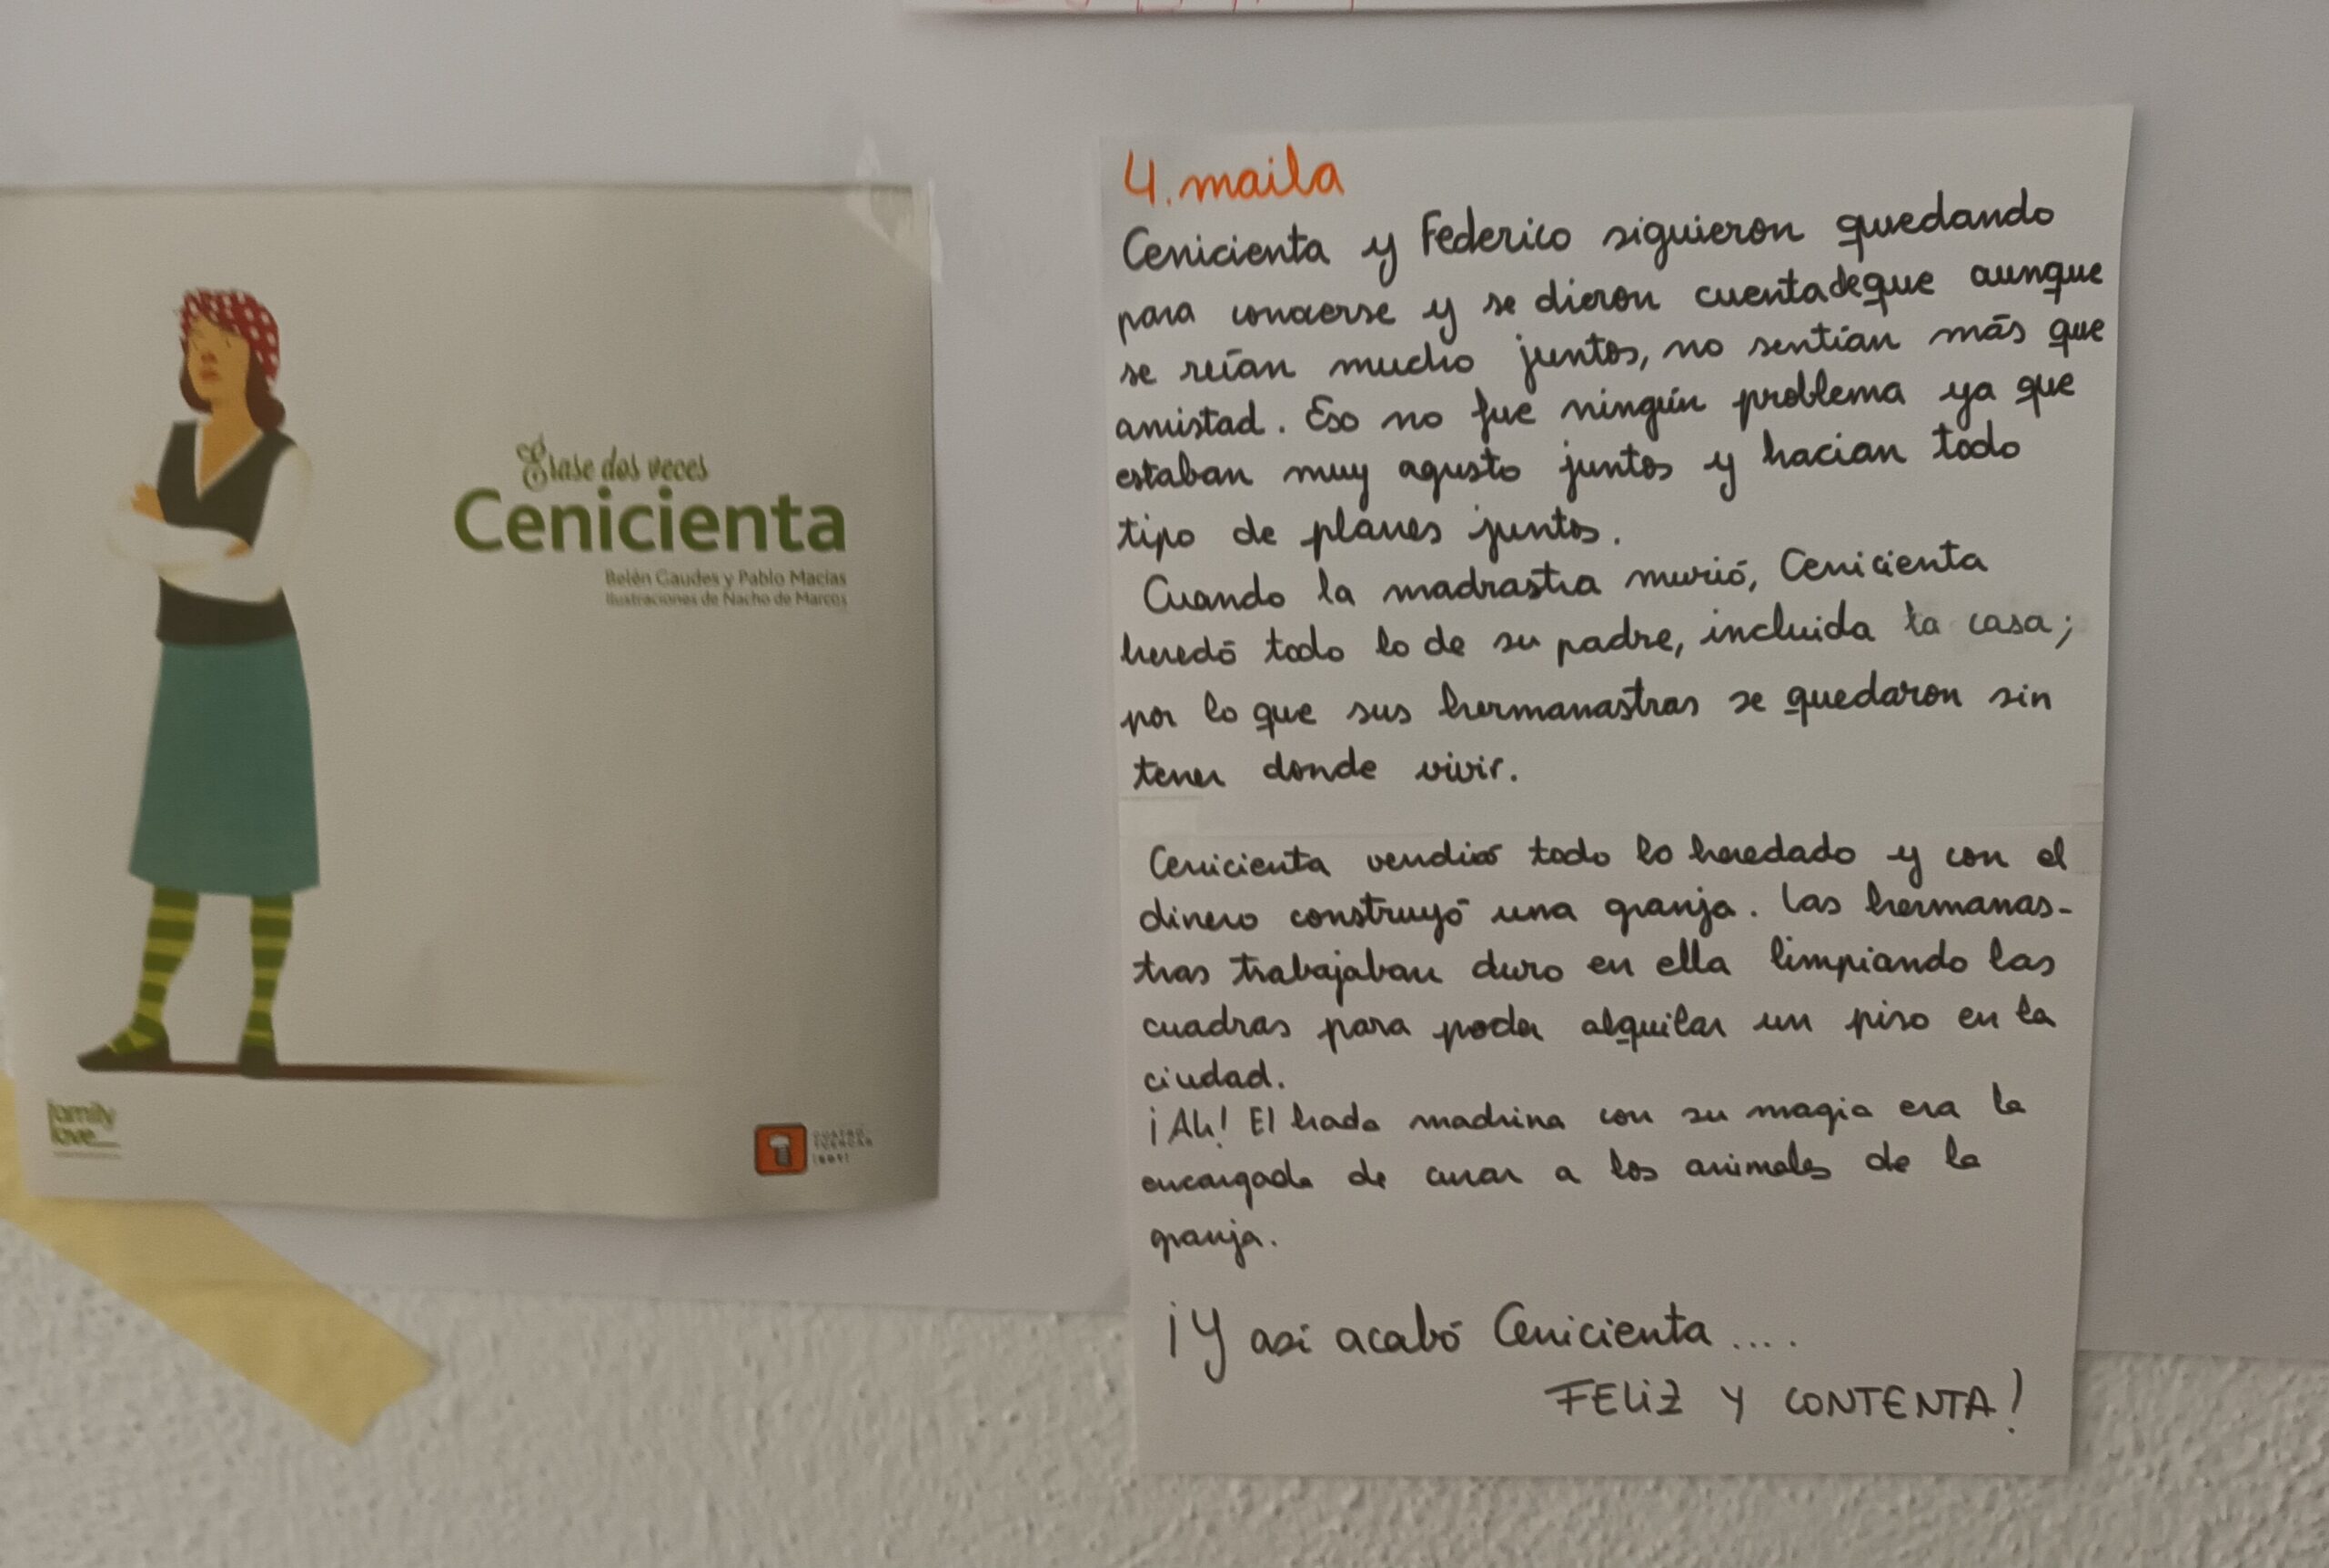 Érase dos veces
Cenicienta
Belén Gaudes y Pablo Macías
Ilustraciones de Nacho de Marcos
family
love
CUATRO
TUERCAS
4. maila
Cenicienta y Federico siguieron quedando
para conocerse y se dieron cuentadeque aunque
se reían mucho juntos, no sentían más que
amistad. Eso no fue ningún problema ya que
estaban muy agusto juntos y hacian todo
tipo de planes juntos.
Cuando la madrastra murió, Cenicienta
heredó todo lo de su padre, incluida la casa;
por lo que sus hermanastras se quedaron sin
tener donde vivir.
Cenicienta vendió todo lo heredado y con el
dinero construyó una granja. Las hermanas-
tras trabajaban duro en ella limpiando las
cuadras para poder alquilar un piso en la
ciudad.
¡Ah! El hada madrina con su magia era la
encargada de curar a los animales de la
granja.
¡Y así acabó Cenicienta ....
FELIZ Y CONTENTA!